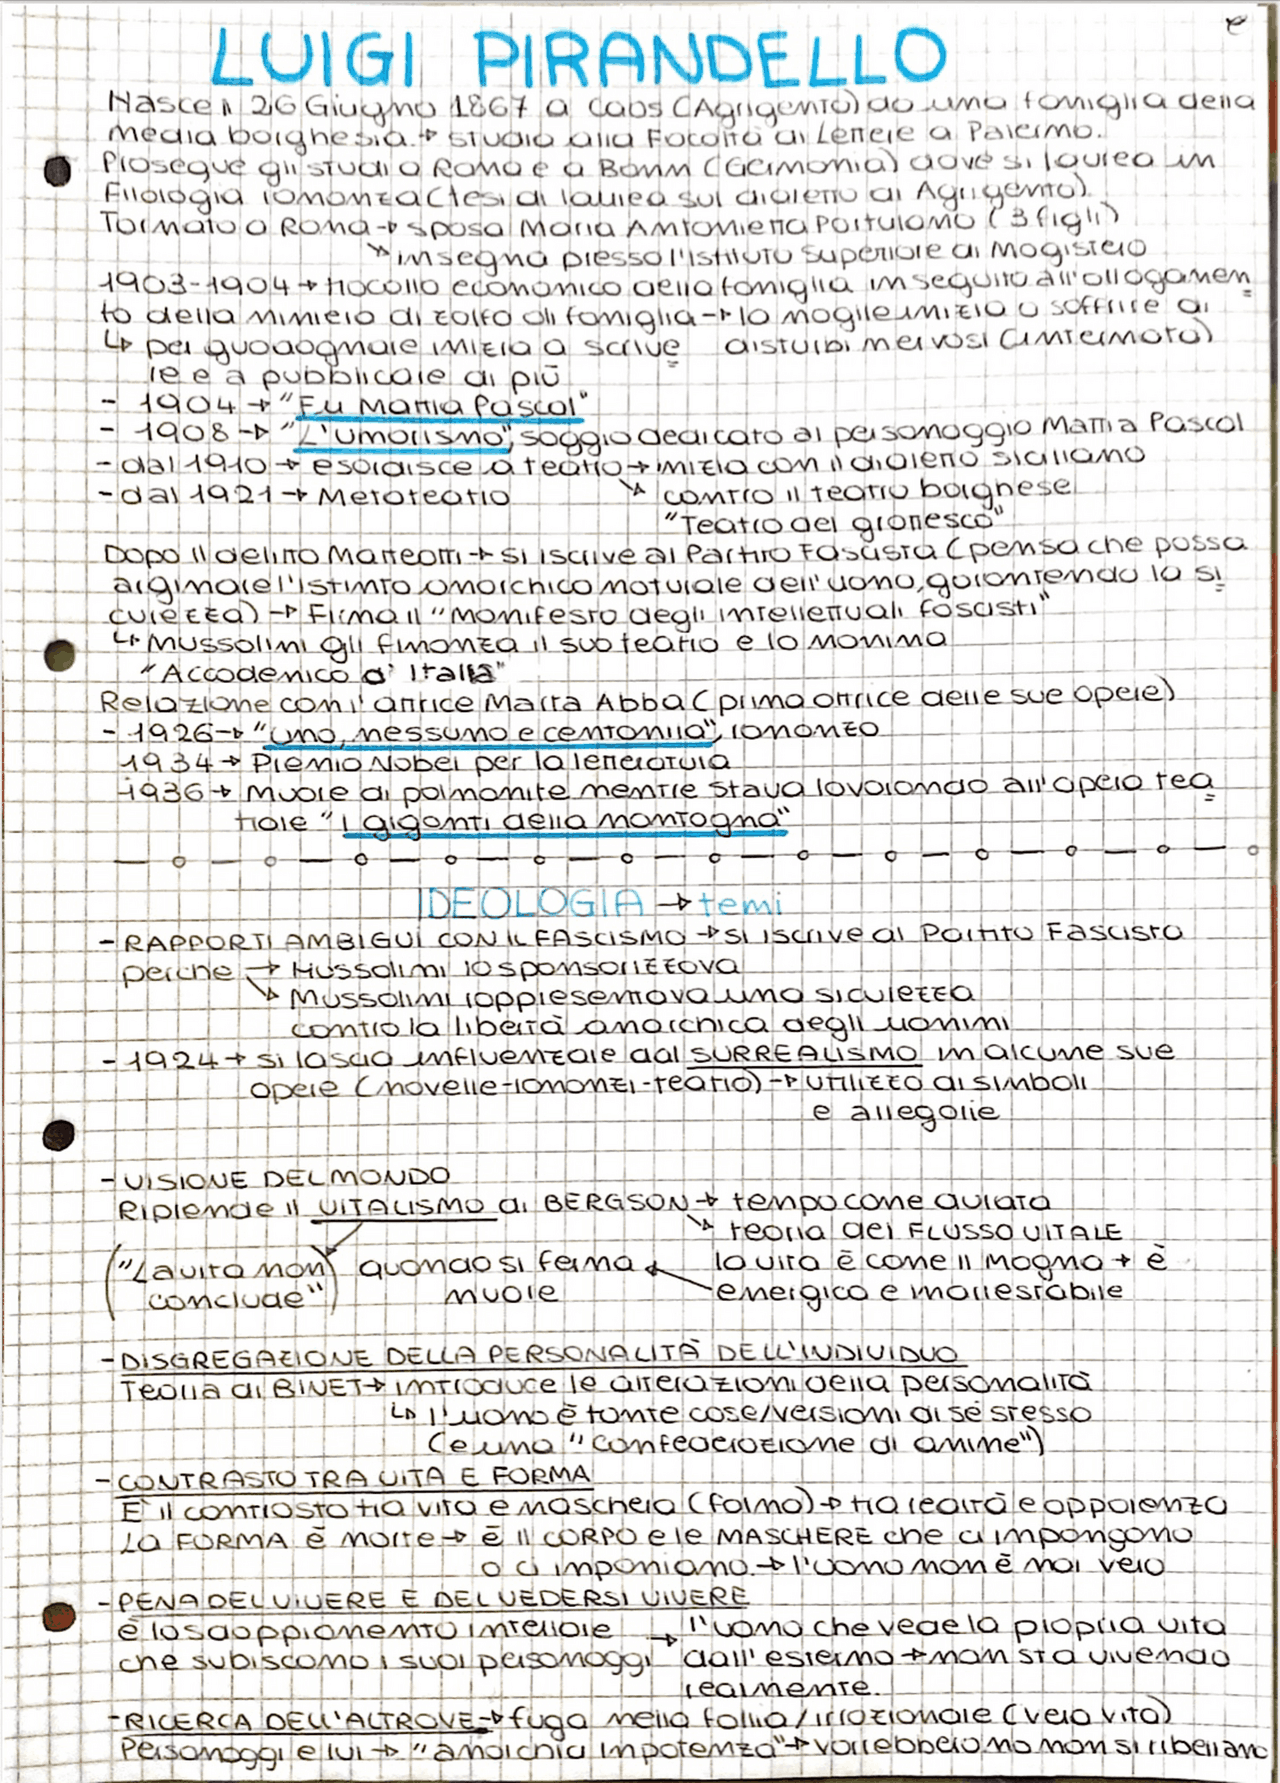 LUIGI PIRANDELLO
Nasce il 26 Giugno 1867 a Caos (Agrigento) da una famiglia della
media borghesia. → studia alla Facoltà di Lettere a Palermo.
Prosegue gli studi a Roma e a Bonn (Germania) dove si laurea in
Filologia romanza (tesi di laurea sul dialetto di Agrigento)
Tornato a Roma → sposa Maria Antonietta Portulano (3 figli)
↘ insegna presso l'Istituto Superiore di Magistero
1903-1904 → tracollo economico della famiglia in seguito all'allagamen
to della miniera di zolfo di famiglia → la moglie inizia a soffrire di
↳ per guadagnare inizia a scrive disturbi nervosi (internata)
re e a pubblicare di più
- 1904 → "Fu Mattia Pascal"
- 1908 → "L'umorismo", saggio dedicato al personaggio Mattia Pascal
- dal 1910 → esordisce a teatro → inizia con il dialetto siciliano
- dal 1921 → Metateatro ↘ contro il teatro borghese
"Teatro del grottesco"
Dopo il delitto Matteotti → si iscrive al Partito Fascista (pensa che possa
arginare l'istinto anarchico naturale dell'uomo, garantendo la si
curezza) → Firma il "manifesto degli intellettuali fascisti"
↳ Mussolini gli finanzia il suo teatro e lo nomina
"Accademico d'Italia"
Relazione con l'attrice Marta Abba (prima attrice delle sue opere)
- 1926 → "Uno, nessuno e centomila", romanzo
1934 → Premio Nobel per la letteratura
1936 → Muore di polmonite mentre stava lavorando all'opera tea
trale "I giganti della montagna"
IDEOLOGIA → temi
- RAPPORTI AMBIGUI CON IL FASCISMO → si iscrive al Partito Fascista
perché → Mussolini lo sponsorizzava
↘ Mussolini rappresentava una sicurezza
contro la libertà anarchica degli uomini
- 1924 → si lascia influenzare dal SURREALISMO in alcune sue
opere (novelle-romanzi-teatro) → utilizzo di simboli
e allegorie
- VISIONE DEL MONDO
Riprende il VITALISMO di BERGSON → tempo come durata
↘ teoria del FLUSSO VITALE
("La vita non quando si ferma ← la vita è come il magma → è
conclude") muore energico e inarrestabile
- DISGREGAZIONE DELLA PERSONALITÀ DELL'INDIVIDUO
Teoria di BINET → introduce le alterazioni della personalità
↳ l'uomo è tante cose/versioni di sé stesso
(è una "confederazione di anime")
- CONTRASTO TRA VITA E FORMA
È il contrasto tra vita e maschera (forma) → tra realtà e apparenza
La FORMA è morte → è il CORPO e le MASCHERE che ci impongono
o ci imponiamo. → l'uomo non è mai vero
- PENA DEL VIVERE E DEL VEDERSI VIVERE
è lo sdoppiamento interiore → l'uomo che vede la propria vita
che subiscono i suoi personaggi dall'esterno → non sta vivendo
realmente.
- RICERCA DELL'ALTROVE → fuga nella follia/irrazionale (vera vita)
Personaggi e lui → "anarchia impotenza" → vorrebbero ma non si ribellano